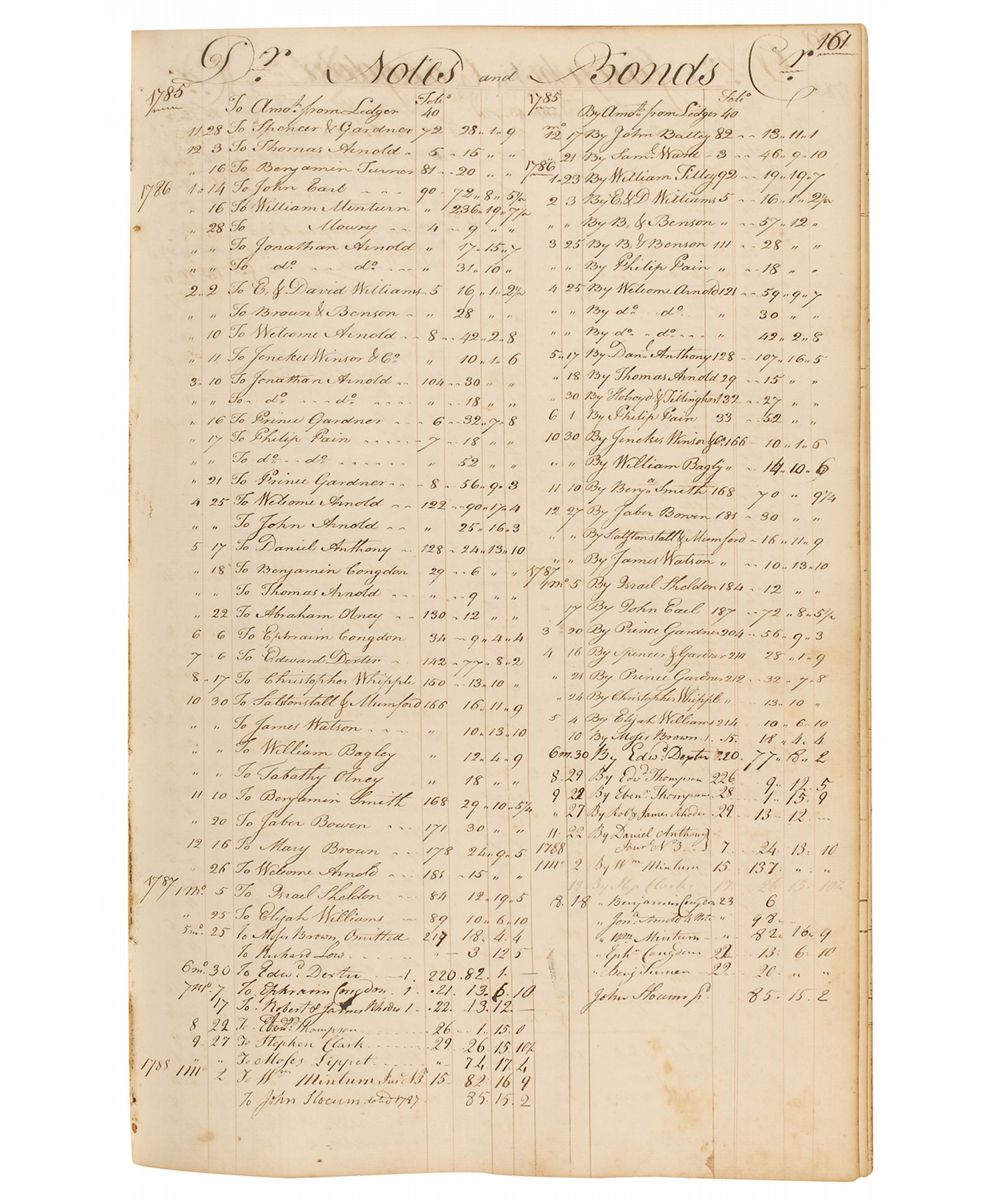 161
Dr Notes and Bonds Cr
1785 Folio
To Amot. from Ledger 40
11 28 To Spencer & Gardner 72 28 " 1 " 9
12 3 To Thomas Arnold 5 15 " "
" 16 To Benjamin Turner 81 20 " "
1786 1 " 14 To John Earl 90 72 " 8 " 5 1/2
" 16 To William Minturn " 236 " 19 " 7 1/2
" 28 To Moury 4 9 " "
" " To Jonathan Arnold " 17 " 15 " 7
" " To do. do. " 31 " 10 "
2 " 2 To E. & David Williams 5 16 " 1 " 2 1/2
" " To Brown & Benson " 28 " "
" 10 To Welcome Arnold 8 42 " 2 " 8
" 11 To Jenckes Winsor & Co. " 10 " 1 " 6
3 " 10 To Jonathan Arnold 104 30 " "
" " To do. do. " 18 " "
" 16 To Prince Gardner 6 32 " 7 " 8
" 17 To Philip Pain 7 18 " "
" " To do. do. " 52 " "
" 21 To Prince Gardner 8 56 " 9 " 3
4 25 To Welcome Arnold 122 90 " 17 " 4
" " To John Arnold " 25 " 16 " 3
5 17 To Daniel Anthony 128 24 " 13 " 10
" 18 To Benjamin Congdon 29 6 " "
" " To Thomas Arnold " 9 " "
" 22 To Abraham Olney 130 12 " "
6 6 To Ephraim Congdon 34 9 " 4 " 4
7 6 To Edward Dexter 142 77 " 8 " 2
8 " 17 To Christopher Whipple 150 13 " 10 "
10 30 To Saltonstall & Mumford 166 16 " 11 " 9
" " To James Watson " 10 " 13 " 10
" " To William Bagley " 12 " 4 " 9
" " To Tabathy Olney " 18 " "
11 10 To Benjamin Smith 168 29 " 10 " 5 1/4
" 20 To Jaber Bowen 171 30 " "
12 16 To Mary Brown 178 24 " 9 " 5
" 26 To Welcome Arnold 181 15 " "
1787 1mo. 5 To Israel Sheldon 84 12 " 19 " 5
" 25 To Elijah Williams 89 10 " 6 " 10
5mo. 25 To Moses Brown Omitted 217 18 " 4 " 4
To Richard Low 3 12 5
6mo 30 To Edwd. Dexter 220 82 1 —
7mo 7 To Ephraim Congdon 21 13 6 10
17 To Robert & James Rhodes 22 13 12 —
8 22 To Ebenr. Thompson 26 1 15 0
9 27 To Stephen Clark 29 26 15 10 1/2
" " To Moses Lippet " 74 17 4
1788 1mo 2 To Wm Minturn 15 82 16 9
To John Slocum dated 1787 85 15 2
1785 Folio
By Amot. from Ledger 40
mo 12 17 By John Battey 82 13 " 11 " 1
" 21 By Saml. Ward 3 46 " 9 " 10
1786 1 " 23 By William Tilley 92 19 " 19 " 7
2 3 By E & D Williams 5 16 " 1 " 2 1/2
" " By B. & Benson " 57 " 12 "
3 25 By B. & Benson 111 28 " "
" " By Philip Pain " 18 " "
4 25 By Welcome Arnold 121 59 " 9 " 7
" " By do. do. " 30 " "
" " By do. do. " 42 " 2 " 8
5 " 17 By Danl. Anthony 128 107 " 16 " 5
" 18 By Thomas Arnold 29 15 " "
" 30 By Holroyd & Tillinghast 32 27 " "
6 1 By Philip Pain 33 52 " "
10 30 By Jenckes, Winsor & Co. 166 10 " 1 " 6
" " By William Bagly " 14 " 10 " 6
11 10 By Benja. Smith 168 70 " 9 1/4
12 27 By Jaber Bowen 181 30 " "
" " By Saltonstall & Mumford 16 " 11 " 9
" " By James Watson " 10 " 13 " 10
1787 1mo. 5 By Israel Sheldon 184 12 " "
17 By John Earl 187 72 " 8 " 5 1/2
3 20 By Prince Gardner 204 56 " 9 " 3
4 16 By Spencer & Gardner 210 28 " 1 " 9
" 21 By Prince Gardner 212 32 " 7 " 8
" 24 By Christopher Whipple " 13 " 10 "
5 4 By Elijah Williams 214 10 " 6 " 10
10 By Moses Brown 18 " 4 " 4
6m. 30 By Edwd. Dexter 220 77 " 8 " 2
8 29 By Edwd. Thompson 226 9 " 12 " 5
9 22 By Ebenr. Thompson 28 1 " 15 " 9
" 27 By Robt. & James Rhodes 29 13 12
11 22 By Daniel Anthony
7 24 13 10
1788 1mo 2 By Wm Minturn 15 137 " "
12 By Stepn. Clark 17 26 15 10 1/2
8 18 " Benjamin Congdon 23 6
" Jona. Arnold
" Wm Minturn " 82 16 9
" Ephm. Congdon 21 13 6 10
" Benj Turner 22 20 " "
John Slocum 85 15 2